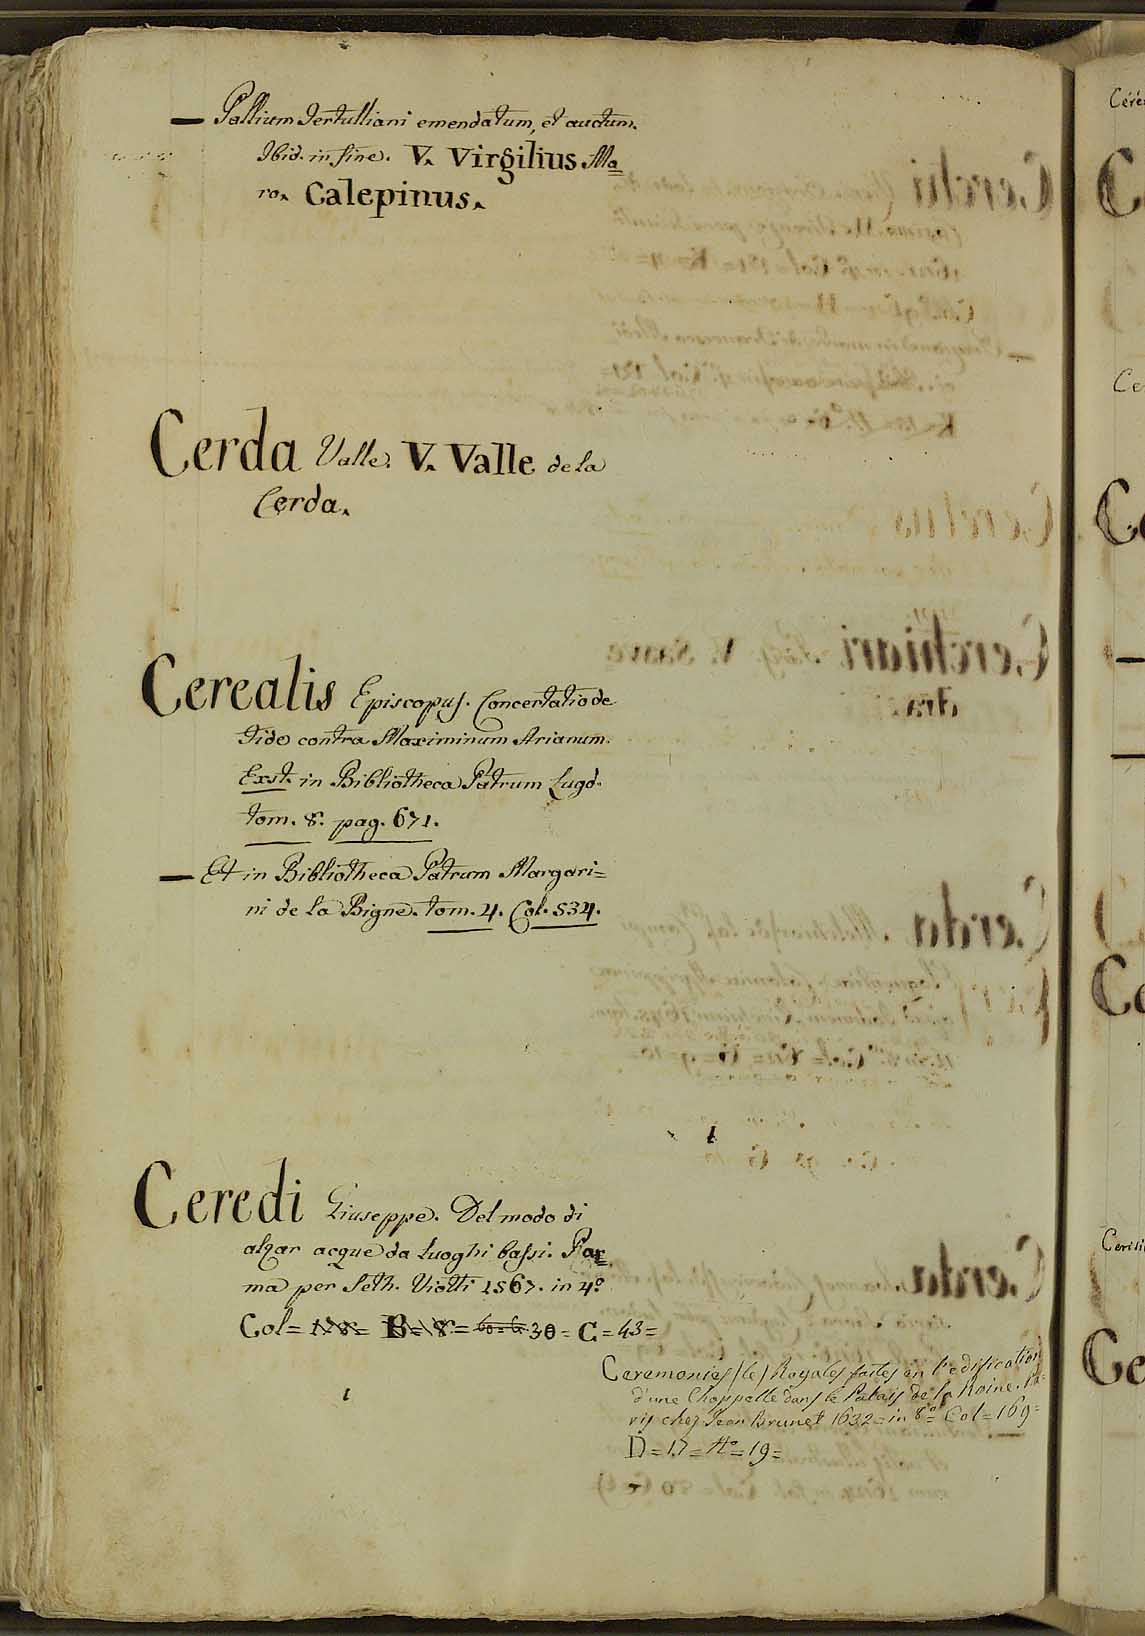 — Pallium Tertulliani emendatum, et auctum.
Ibid. in fine. V. Virgilius Ma=
ro. Calepinus.
Cerda Valle. V. Valle de la
Cerda.
Cerealis Episcopus. Concertatio de
Fide contra Maximinum Arianum.
Exst. in Bibliotheca Patrum Lugd.
tom. 8. pag. 671.
— Et in Bibliotheca Patrum Margari=
ni de la Bigne. tom. 4. Col. 534.
Ceredi Giuseppe. Del modo di
alzar acque da Luoghi bassi. Par=
ma per Seth. Viotti 1567. in 4º
Col= 178= B= 8= 30= C= 43=
Ceremonies (les) Royales faites en l'edification
d'une Chappelle dans le Palais de la Roine. Pa=
ris chez Jean Brunet 1632= in 8º= Col= 169=
D= 17= Nº= 19=
Cere
Ce